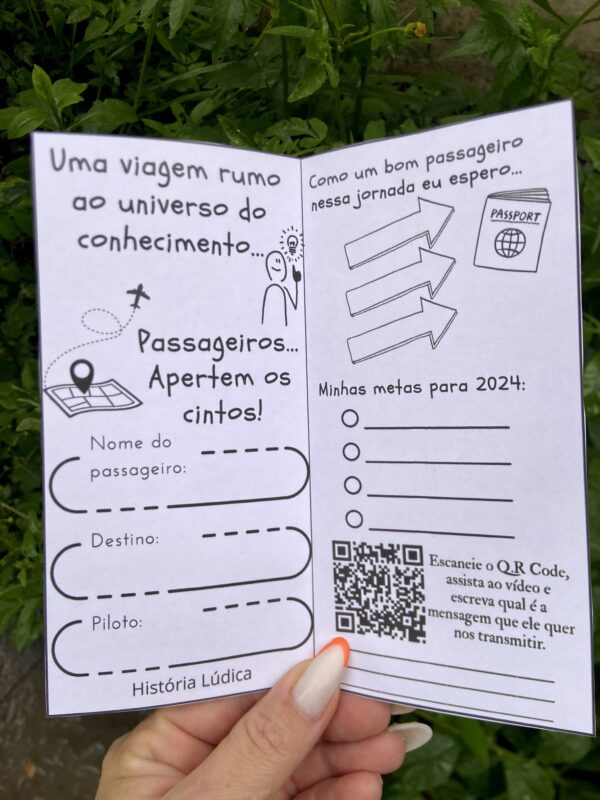 Uma viagem rumo
ao universo do
conhecimento...
Passageiros...
Apertem os
cintos!
Nome do
passageiro:
Destino:
Piloto:
História Lúdica
Como um bom passageiro
nessa jornada eu espero...
PASSPORT
Minhas metas para 2024:
Escaneie o QR Code,
assista ao vídeo e
escreva qual é a
mensagem que ele quer
nos transmitir.